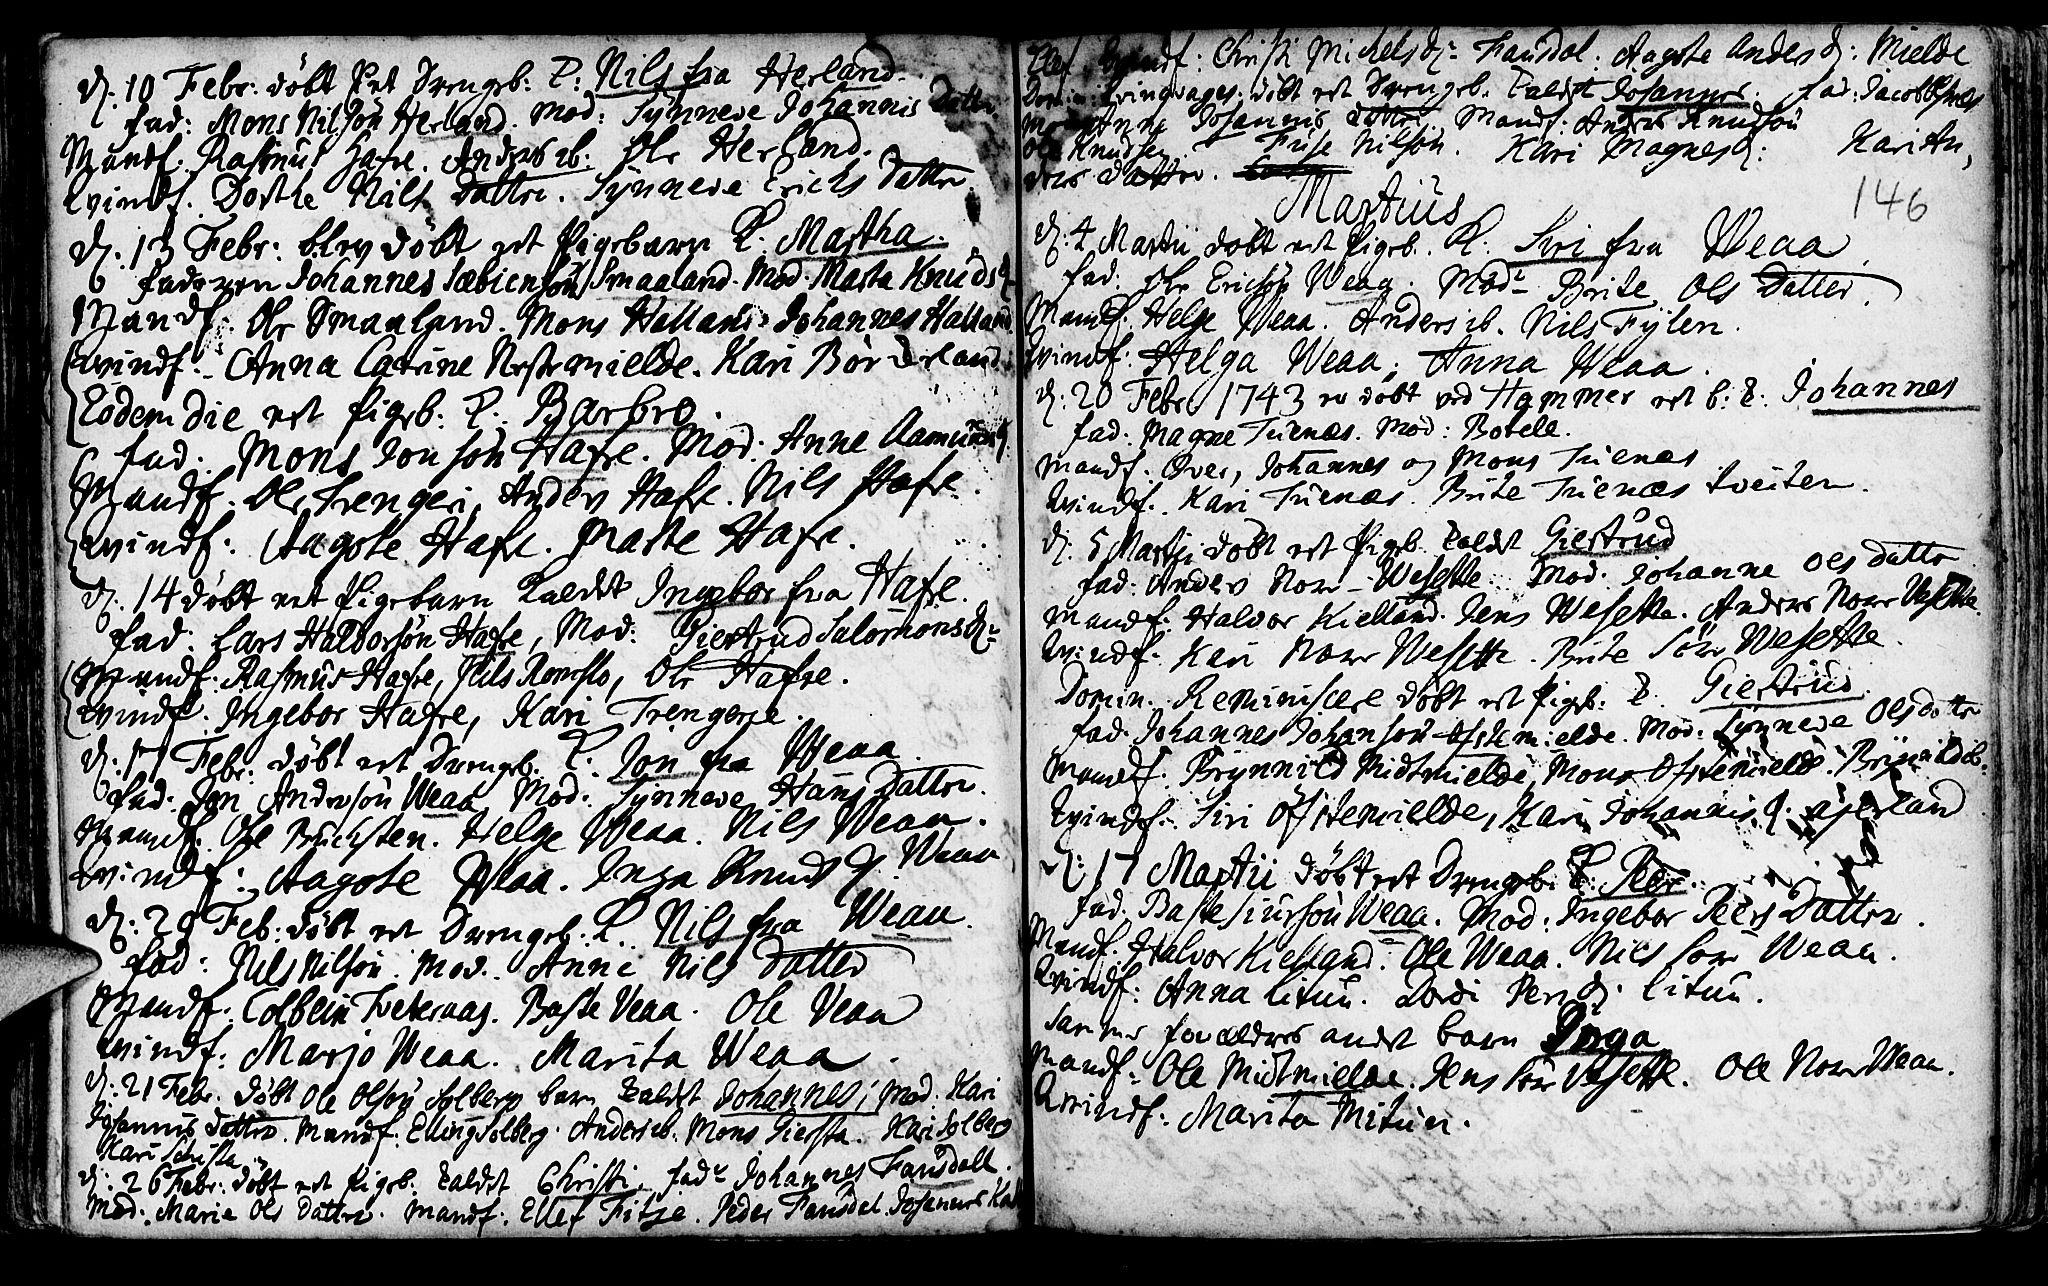 d: 10 Febr: døbt Et Drengeb: k: Nils fra Herland.
fad: Mons Nilsøn Herland. Mod: Synneve Johannis Datter
Mandf. Rasmus Hafre. Anders ib: Ole Herland.
Qvindf. Dorthe Nils Datter. Synneve Erichs Datter.
d: 13 Febr: blev døbt et Pigebarn k. Martha.
faderen Johannes Sæbiensøn Smaaland. Mod. Marta Knuds d
Mandf. Ole Smaaland. Mons Halland. Johannes Halland
Qvindf. Anna Catrine Nestemielde. Kari Børdeland:
Eodem die et Pigeb: k. Barbro.
fad. Mons Jonsøn Hafre. Mod: Anne Aamunds
Mandf. Ole Trengeri, Anders Hafre. Nils Hafre.
Qvindf: Aagote Hafre. Marte Hafre.
d. 14 døbt et Pigebarn kaldet Ingebor fra Hafre.
fad: Lars Haldorsøn Hafre, Mod: Giertrud Salomons d:
Mandf: Rasmus Hafre, Nils Romslo, Ole Hafre.
Qvindf. Ingebor Hafre, Kari Trengerje.
d: 17 Febr: døbt et Drengeb. k: Jon fra Weaa.
fad. Jon Andersøn Weaa. Mod: Synneve Hans Datter.
Mandf. Ole Bruchsten. Helge Weaa. Nils Weaa.
Qvindf: Aagote Weaa. Inga Knuds d. Weaa
d: 20 Feb: døbt et Drengeb. k. Nils fra Weaa.
fad: Nils Nilsøn. Mod. Anne Nils Datter
Mandf: Colbein Tveteraas. Baste Veaa. Ole Veaa
Qvindf: Marjo Weaa. Marita Weaa.
d: 21 Febr. døbt Ole Olsøn Solberg barn kaldet Johannes; Mod. Kari
Johannis Datter. Mandf: Elling Solberg. Anders ib. Mons Giersta. Kari Solberg
Kari
d: 26 Febr: døbt et Pigeb: kaldet Christi. fad: Johannes Fansdall.
Mod. Marie Ols Datter. Mandf: Ellef Fitje. Peder Fansdal. Johannes
Qvindf: Christi Michels d: Fansdal. Aagote Anders d: Mielde
døbt et Drengeb. kaldet Johannes. fad: Jacob
Anna Johannis Datter. Mandf: Anders Knudsøn
Ole Knudsen Fuse Nilsøn. Kari Magnes d: Kari An,
ders Datter.
Martius
146
d. 4 Martii døbt et Pigeb. k. Siri fra Weaa.
fad: Ole Ericsøn Weaa. Mod: Brite Ols Datter.
Mandf. Helge Weaa. Anders ib. Nils Fylen.
Qvindf: Helga Weaa; Anna Weaa.
d: 20 Febr. 1743 er døbt ved Hammer et b: k. Johannes
fad: Magne Tuenæs. Mod: Botele.
Mandf. Iver, Johannes og Mons Tuenæs
Qvindf. Kari Tuenæs. Brite Tuenæs tveiten.
d. 5 Martii døbt et Pigeb kaldet Giertrud
fad. Anders Norr-Wesette. Mod. Johanne Ols Datter
Mandf: Halvor Kielland. Jens Wesette. Anders Norr Vesette.
Qvindf. Kari Norr Wesette. Brite Sør Wesette.
Domin. Reminiscere døbt et Pigeb: k. Giertrud.
fad. Johannes Johansøn Øfstemielde. Mod: Synneve Olsdatter
Mandf. Brynnild Midtmielde, Mons Øfstemielde. Brynild ib:
Qvindf. Siri Øfstemielde, Kari Johannis d.
d: 17 Martii døbt et Drengeb. k. Peer.
fad. Baste Siursøn Weaa. Mod: Ingebor Peers Datter.
Mandf. Halvor Kielland. Ole Weaa. Niels Sør Weaa.
Qvindf: Anna Litun. Dordi Pers d: Litun.
Samme forældres andet barn Inga
Mandf: Ole Midtmielde. Jens Sør Vesette. Ole Norr Weaa.
Qvindf: Marita Mitun.